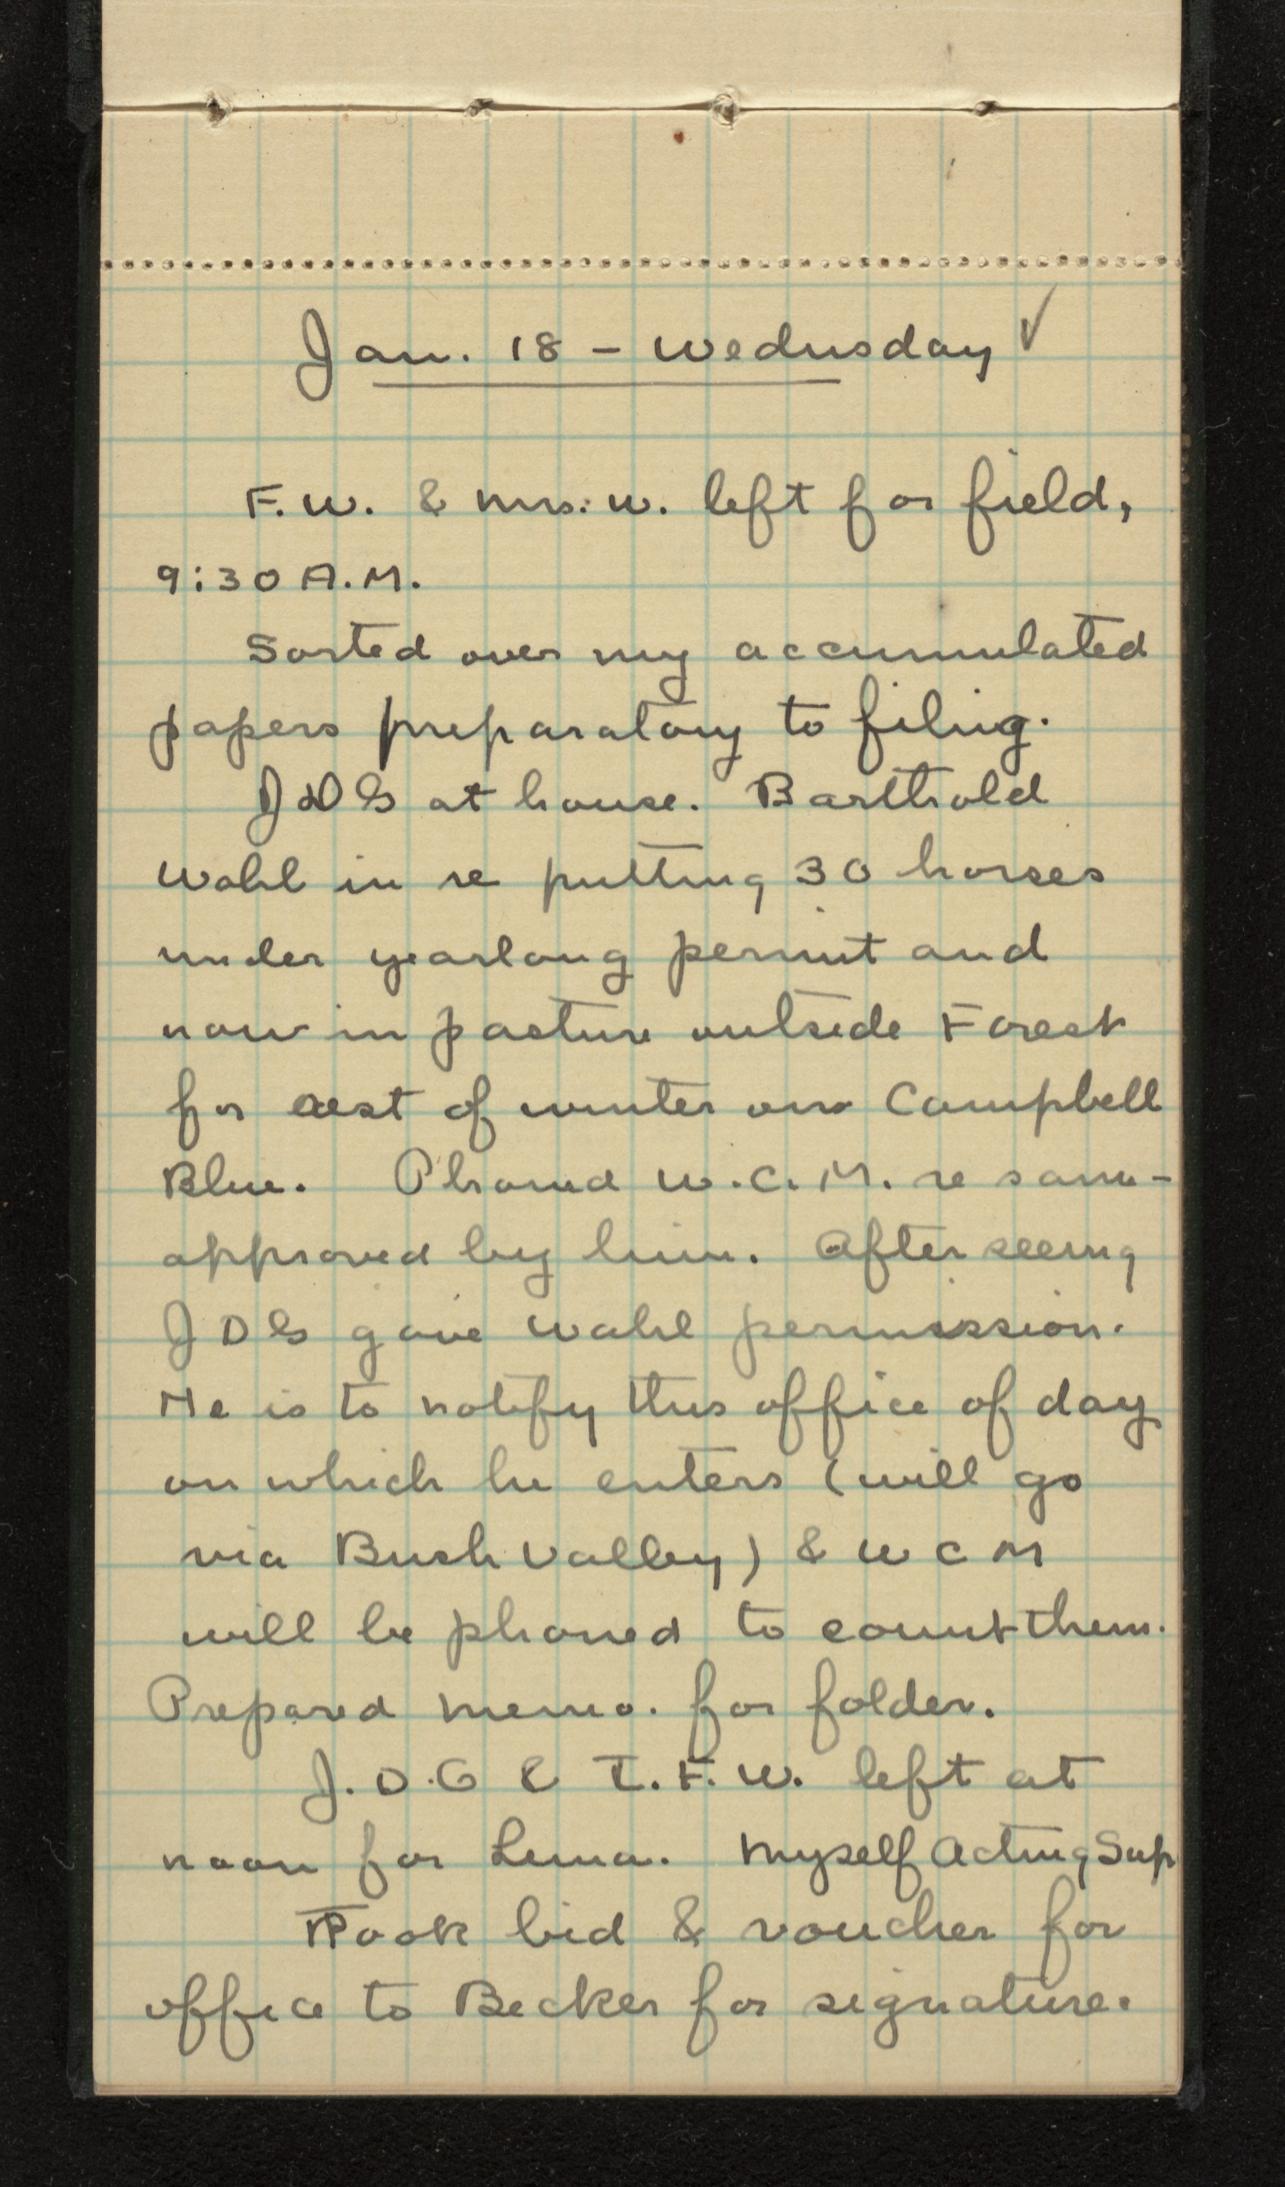 Jan. 18 - Wednesday ✓
F.W. & Mrs. W. left for field,
9:30 A.M.
Sorted over my accumulated
papers preparatory to filing.
JDG at house. Barthold
Wahl in re putting 30 horses
under yearlong permit and
now in pasture outside Forest
for rest of winter on Campbell
Blue. Phoned W.C.M. re same -
approved by him. After seeing
JDG gave Wahl permission.
He is to notify this office of day
on which he enters (will go
via Bush Valley) & WCM
will be phoned to count them.
Prepared memo. for folder.
J.D.G & I.F.W. left at
noon for Luna. Myself Acting Sup
Took bid & voucher for
office to Becker for signature.